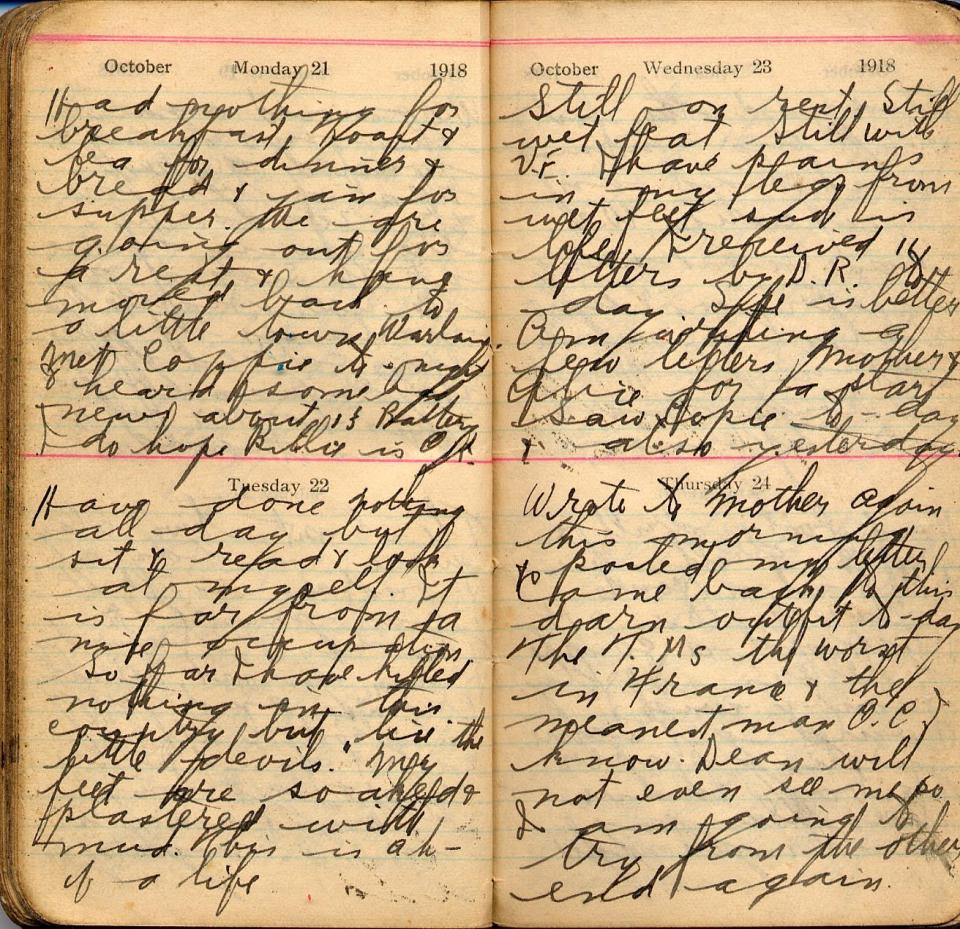 October Monday 21 1918
Had nothing for
breakfast, Roast &
tea for dinner &
bread & jam for
supper. We are
going out for
a rest & have
moved back to
a little town,
Met Coppie to-night
& heard some bad
news about 1st Battery
I do hope Billie is O.K.
Tuesday 22
Have done nothing
all day but
sit & read & look
at myself. It
is far from a
nice occupation
So far I have killed
nothing in this
country but "lice the
little devils." My
feet are soaked &
plastered with
mud. This is
of a life
October Wednesday 23 1918
Still on rest, Still
wet feet Still with
I have pains
in my legs from
wet feet and is
I received 14
letters by D.R. to
day She is better
Am writing a
few letters Mother &
for a start
Saw Copie to-day
& also yesterday
Thursday 24
Wrote to Mother again
this morning
& posted my letter
Came back to this
darn outfit to-day
The T. Ms the worst
in France & the
meanest man O.C. I
know. Dean will
not even see me so
I am going to
try from the other
end again.